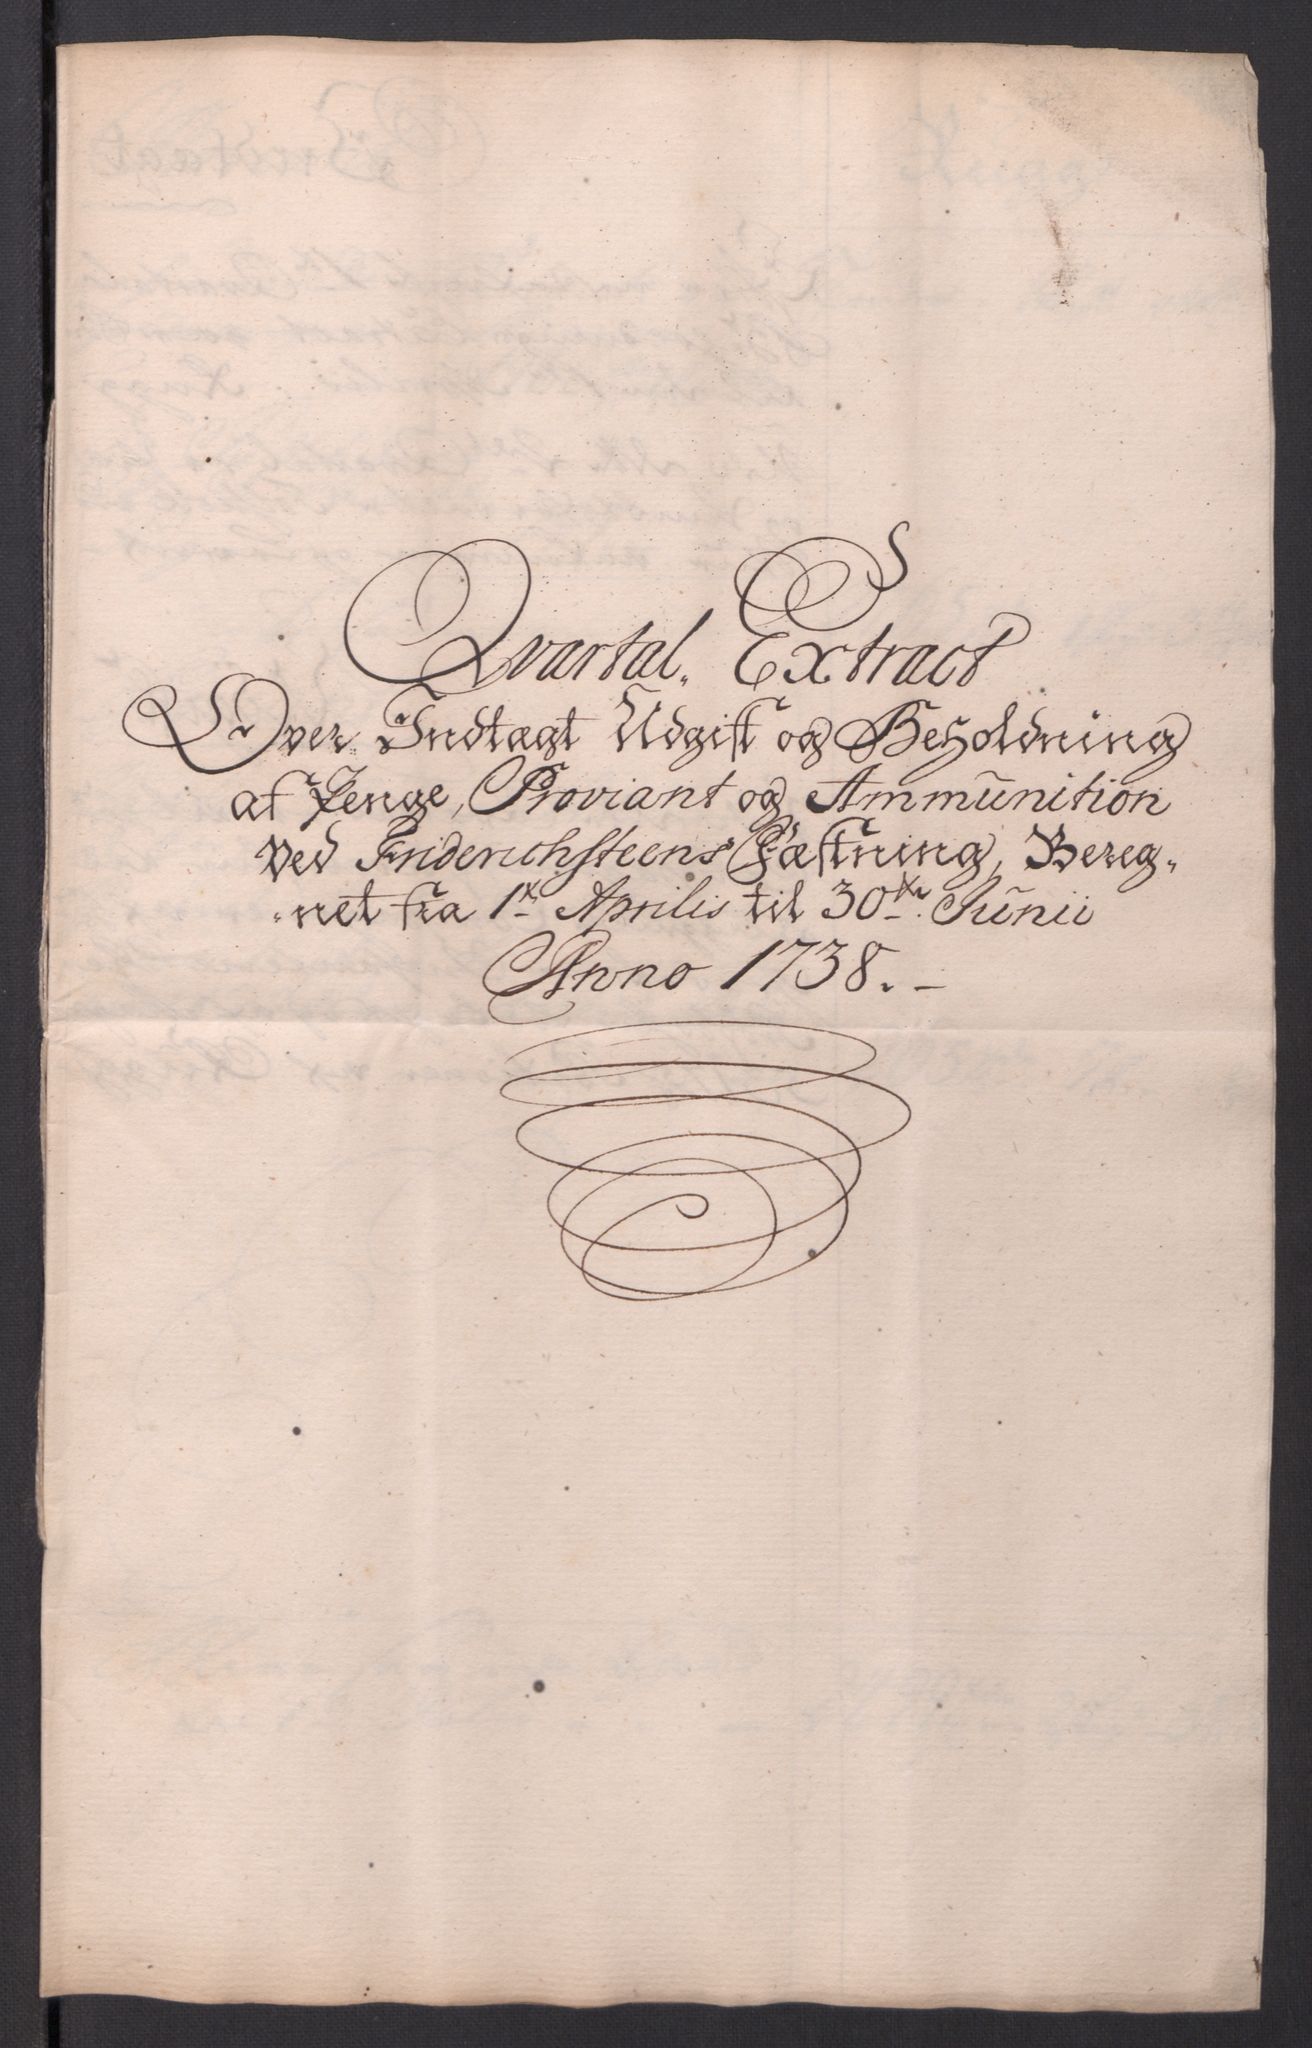 Qvartal. Extract
Over Indtægt Udgift og Beholdning
af Penge, Proviant og Ammūnition
Ved Friderichsteens Fæstning, Bereg-
-net fra 1te Aprilis til 30te Jūnii
Anno 1738.-